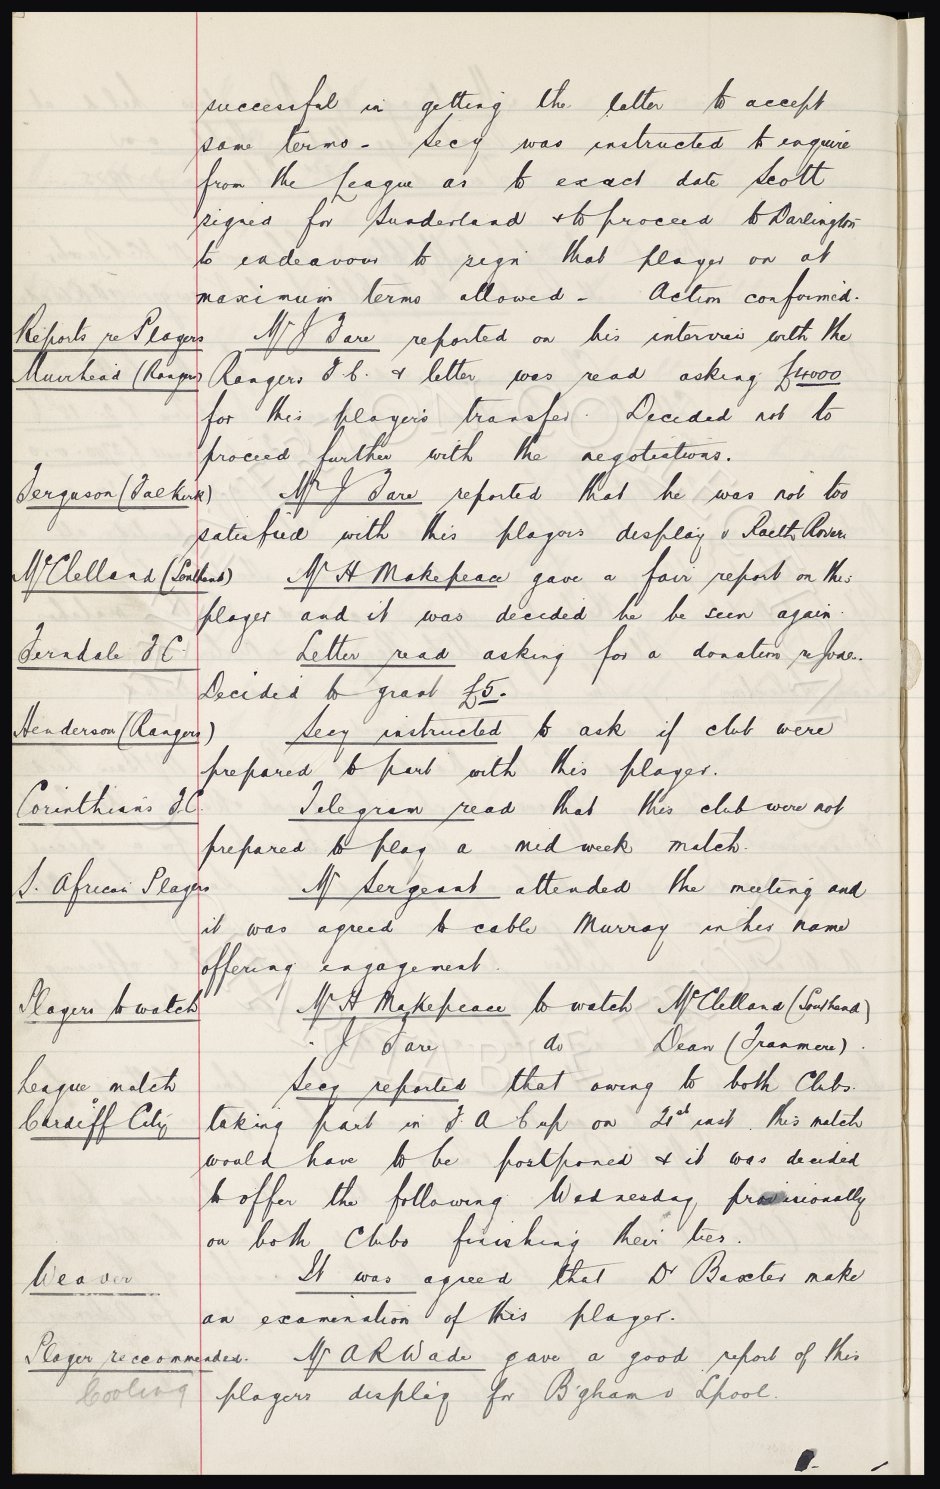 successful in getting the latter to accept
same terms - Secy was instructed to enquire
from the League as to exact date Scott
signed for Sunderland & to proceed to Darlington
to endeavour to sign that player on at
maximum terms allowed - Action confirmed.
Reports re Players Mr J Fare reported on his interview with the
Muirhead (Rangers) Rangers F C. & letter was read asking £4000
for this players transfer. Decided not to
proceed further with the negotiations.
Ferguson (Falkirk) Mr J Fare reported that he was not too
satisfied with this players display v Raith Rovers
McClelland (Southend) Mr H Makepeace gave a fair report on this
player and it was decided he be seen again.
Ferndale F C. Letter read asking for a donation re
Decided to grant £5.
Henderson (Rangers) Secy instructed to ask if club were
prepared to part with this player.
Corinthians F.C. Telegram read that this club were not
prepared to play a mid week match.
S. African Players Mr Sergeant attended the meeting and
it was agreed to cable Murray in his name
offering engagement.
Players to watch Mr H Makepeace to watch McClelland (Southend)
" J Fare do Dean (Tranmere).
League match Secy reported that owing to both Clubs
Cardiff City taking part in F. A Cup on 21st inst. this match
would have to be postponed & it was decided
to offer the following Wednesday provisionally
on both Clubs finishing their ties.
Weaver It was agreed that Dr Baxter make
an examination of this player.
Player reccommended. Mr A R Wade gave a good report of this
Cooling players display for B'gham v Lpool.